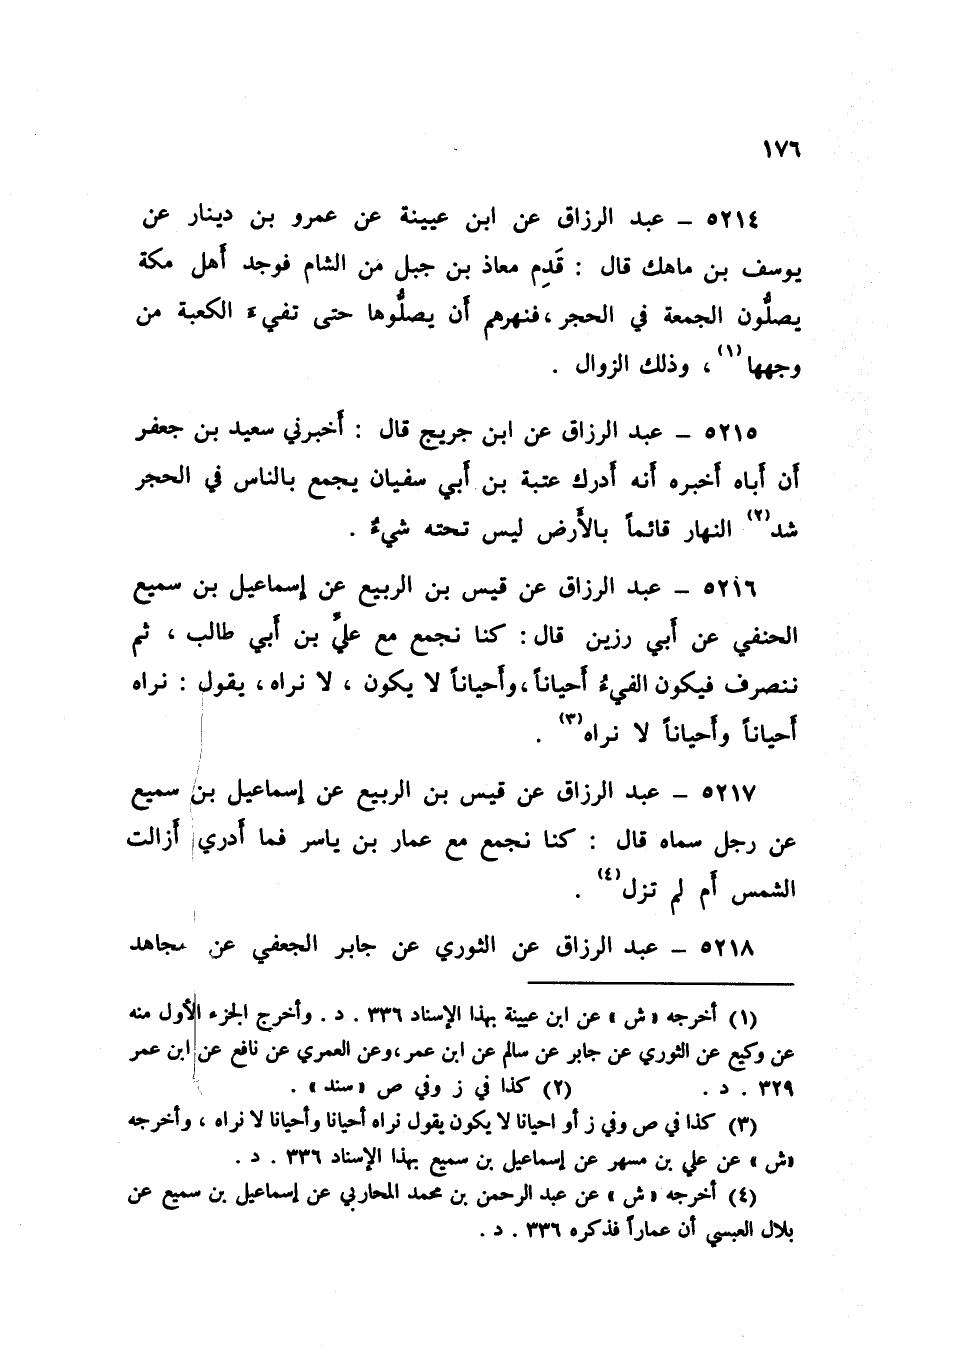 ١٧٦
٥٢١٤ – عبد الرزاق عن ابن عيينة عن عمرو بن دينار عن
يوسف بن ماهك قال : قَدِم معاذ بن جبل من الشام فوجد أهل مكة
يصلُّون الجمعة في الحجر ، فنهرهم أن يصلُّوها حتى تفيءَ الكعبة من
وجهها (١) ، وذلك الزوال .
٥٢١٥ – عبد الرزاق عن ابن جريج قال : أخبرني سعيد بن جعفر
أن أباه أخبره أنه أدرك عتبة بن أبي سفيان يجمع بالناس في الحجر
شد (٢) النهار قائماً بالأرض ليس تحته شيءٌ .
٥٢١٦ – عبد الرزاق عن قيس بن الربيع عن إسماعيل بن سميع
الحنفي عن أبي رزين قال : كنا نجمع مع عليٍّ بن أبي طالب ، ثم
ننصرف فيكون الفيءُ أحياناً ، وأحياناً لا يكون ، لا نراه ، يقول : نراه
أحياناً وأحياناً لا نراه (٣) .
٥٢١٧ – عبد الرزاق عن قيس بن الربيع عن إسماعيل بن سميع
عن رجل سماه قال : كنا نجمع مع عمار بن ياسر فما أدري أزالت
الشمس أم لم تزل (٤) .
٥٢١٨ – عبد الرزاق عن الثوري عن جابر الجعفي عن مجاهد
(١) أخرجه «ش» عن ابن عيينة بهذا الإسناد ٣٣٦ . د . وأخرج الجزء الأول منه
عن وكيع عن الثوري عن جابر عن سالم عن ابن عمر ، وعن العمري عن نافع عن ابن عمر
٣٢٩ . د . (٢) كذا في ز وفي ص «سند» .
(٣) كذا في ص وفي ز أو احيانا لا يكون يقول نراه أحيانا وأحيانا لا نراه ، وأخرجه
«ش» عن علي بن مسهر عن إسماعيل بن سميع بهذا الإسناد ٣٣٦ . د .
(٤) أخرجه «ش» عن عبد الرحمن بن محمد المحاربي عن إسماعيل بن سميع عن
بلال العبسي أن عماراً فذكره ٣٣٦ . د .